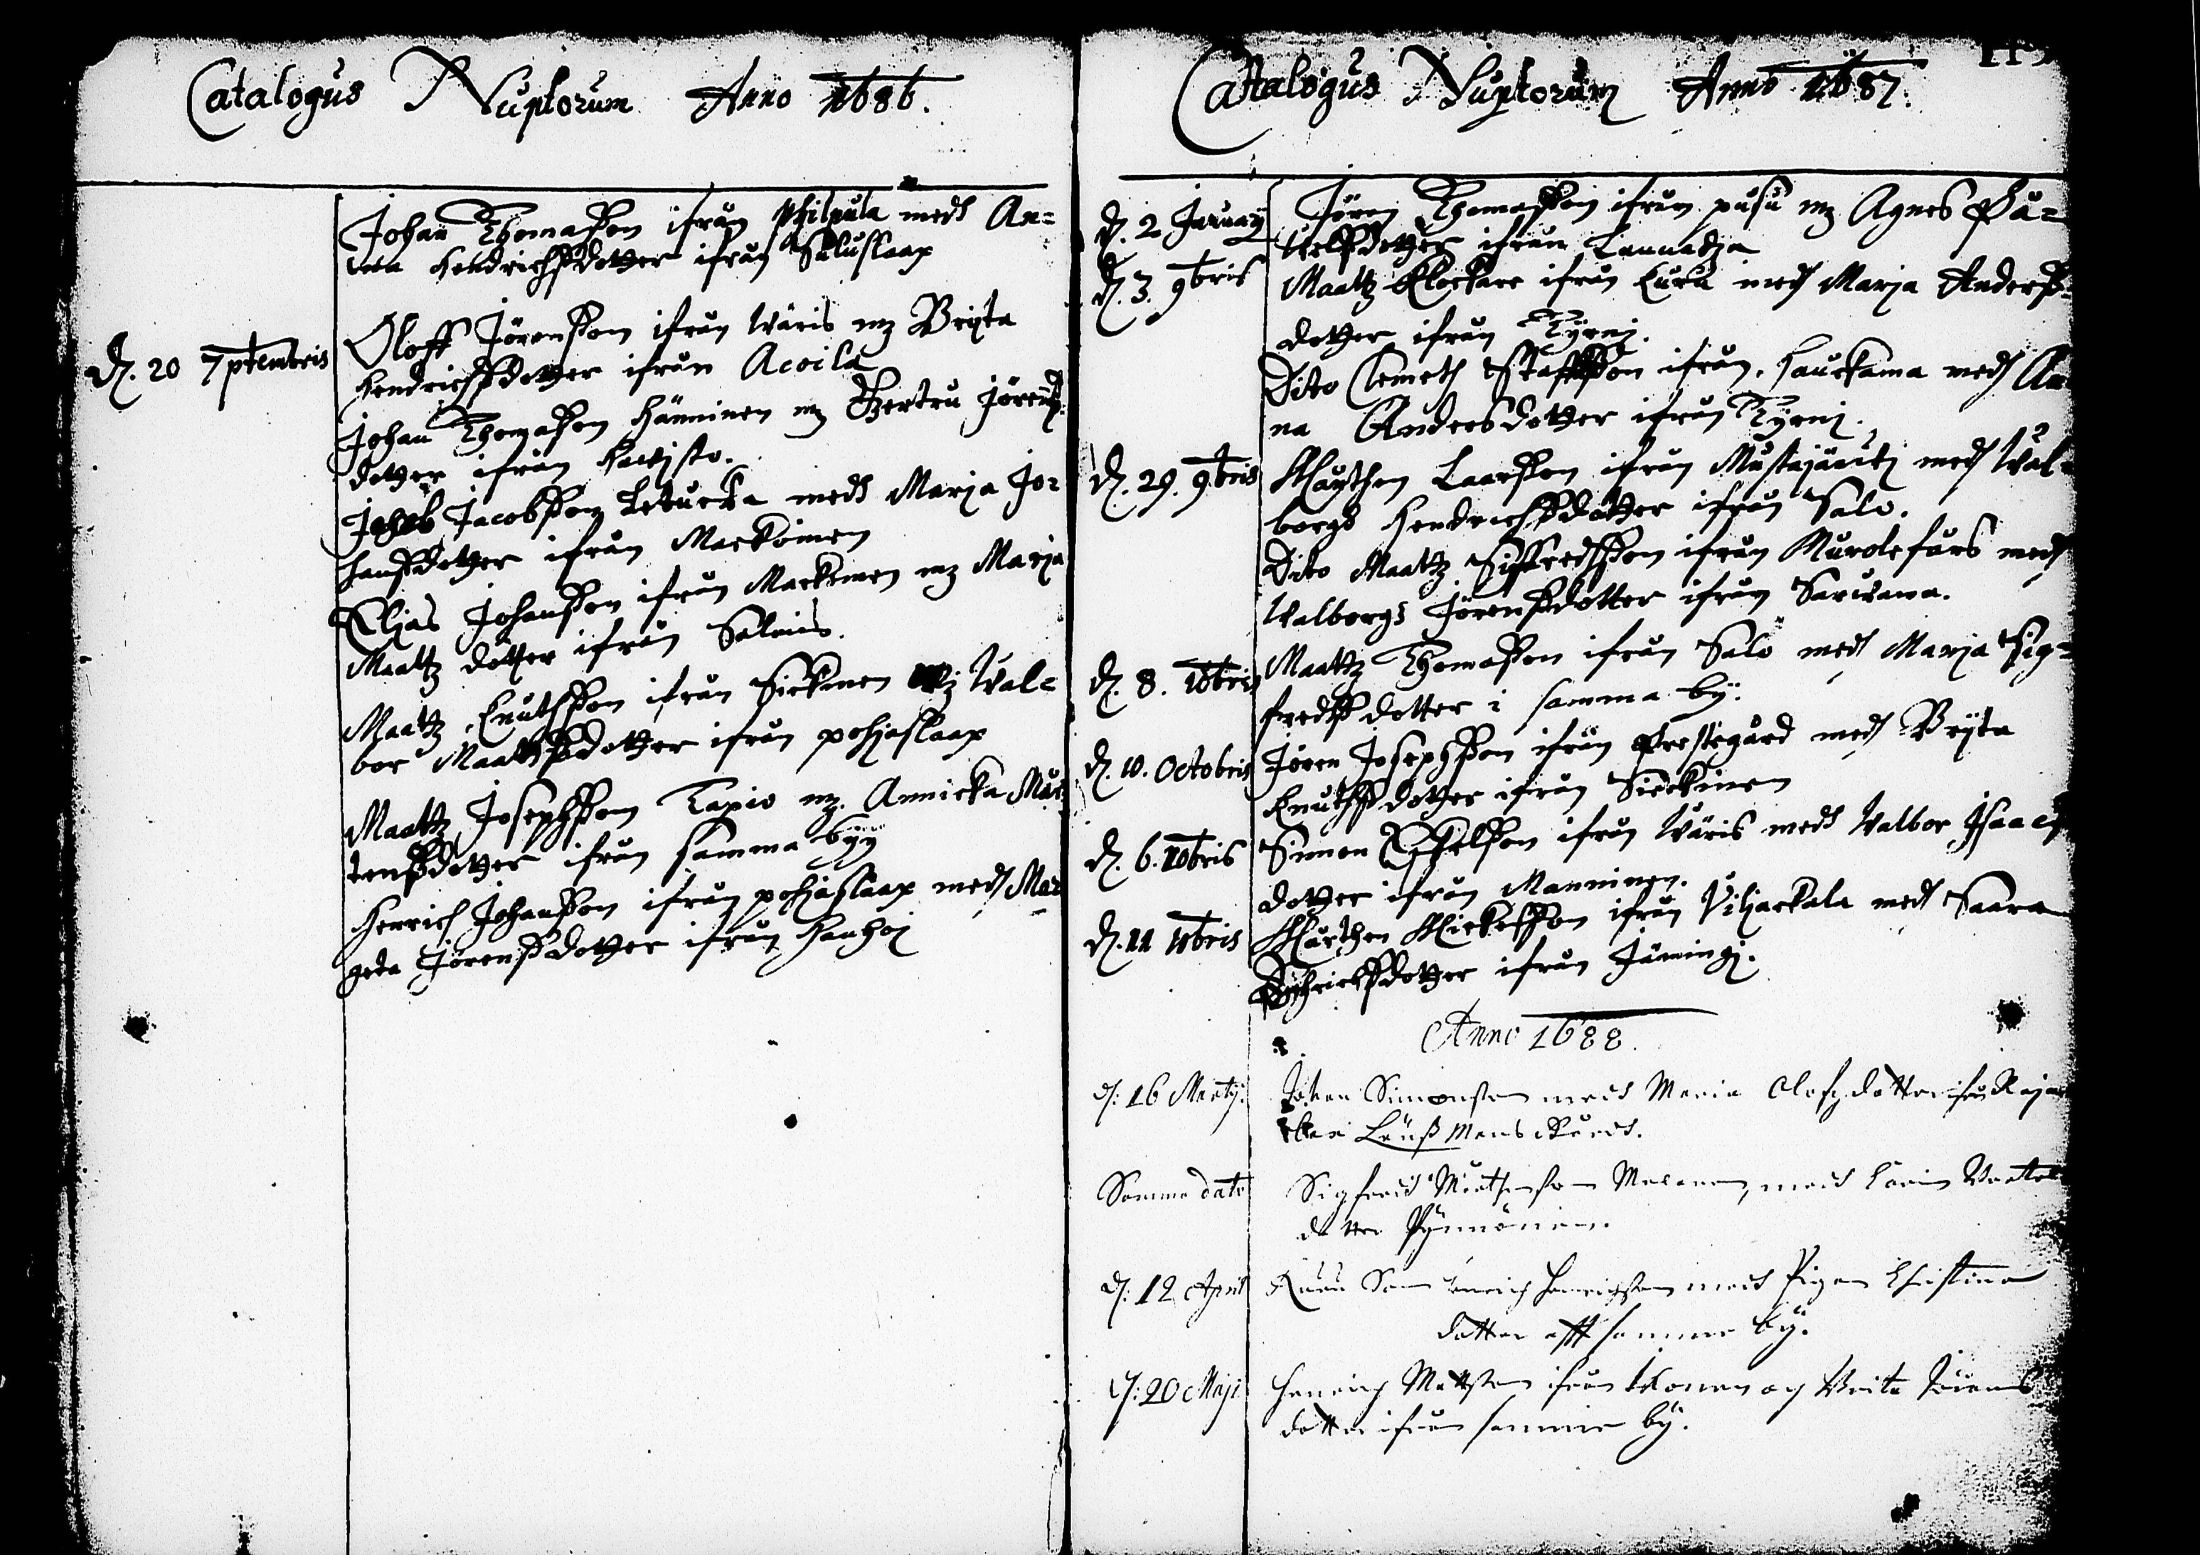 Catalogus Nuptorum Anno 1686.
Johan Thomasson ifrån philpula medh An=
na Hendrichssdotter ifrån Saluslaap
d. 20 7ptembris Oloff Jörensson ifrån Wäris mz Bryta
Hendrichssdotter ifrån Acoila
Johan Thomasson Hänninen mz Giertru Jörenss
dotter ifrån
Jacob Jacobsson medh Marja Jo=
hanssdotter ifrån Mackoinen
Eljas Johansson ifrån Mackonen mz Marja
Maattz dotter ifrån Salmis.
Maattz Knuthsson ifrån Sickinen mz Wal=
bor Maattzssdotter ifrån pohjaslaap
Maattz Josephsson Tapio mz Annicka Mår
tenssdotter ifrån samma byy
Henrich Johansson ifrån pohjaslaap medh Mar
geta Jörenssdotter ifrån Hanhoi
Catalogus Nuptorum Anno 1687.
d. 2 January Jören Thomasson ifrån pusu mz Agnes På=
welssdotter ifrån Lannadja
d. 3. 9bris Maattz Klockare ifrån Eura medh Marja Anderss=
dotter ifrån Tyrni.
Dito Clemeth Staffsson ifrån Hauckama medh An
na Andersdotter ifrån Tyrni.
d. 29. 9bris Mårthen Laarsson ifrån Mustajärvi medh Wal=
borgh Hendrichssdotter ifrån Salo.
Dito Maattz Siffredhsson ifrån medh
Walborgh Jörenssdotter ifrån Sarwana.
d. 8. 10bris Maattz Thomasson ifrån Salo medh Marja Sig=
fredss dotter i samma by.
d. 10. Octobris Jören Josephsson ifrån Prestegård medh Bryta
Knuthssdotter ifrån Sickinen
d. 6. 10bris Simon Eskelsson ifrån Wäris medh Walbor Isaacs
dotter ifrån Manninen.
d. 11 10bris Mårthen Mickelsson ifrån Viljackala medh Saara
ifrån Jämingi.
Anno 1688.
d: 16 Martij. Johan Simonsson medh Maria Olofzdotter ifrån
Länssmans
Samma dato Sigfredh Mårthensson medh Karin
dotter Pynnönin.
d: 12 April Henrich Henrichsson medh Pigan Christina
dotter aff samma by.
d: 20 Maji Henrich Mattsson ifrån och Brita Jörens
dotter ifrån samma by.